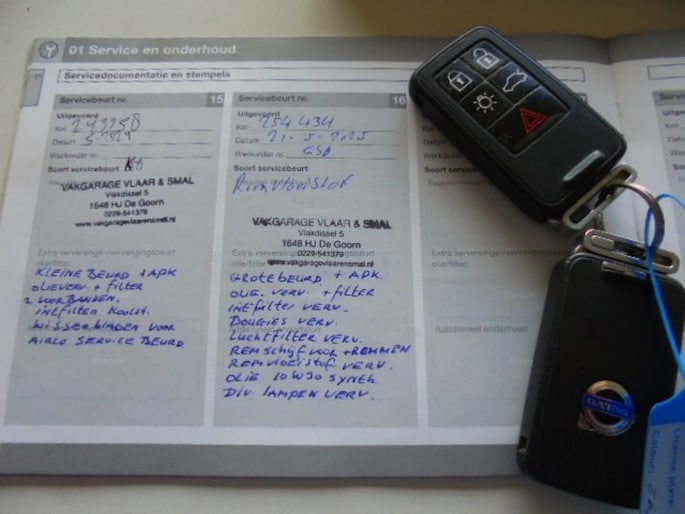 01 Service en onderhoud
Servicedocumentatie en stempels
Servicebeurt nr. 15
Uitgevoerd
Km
Datum 5-2024
Werkorder nr.
Soort servicebeurt KB
VAKGARAGE VLAAR & SMAL
Vlakdissel 5
1648 HJ De Goorn
0229-541379
www.vakgaragevlaarensmal.nl
Extra verversings-/vervangingsbeurt
olie/filter:
KLEINE BEURD + APK
OLIEVERV. + FILTER
2 VOORBANDEN.
INEFILTER KOOLST.
WISSERBLADEN VOOR
AIRCO SERVICE BEURD
Servicebeurt nr. 16
Uitgevoerd
Km 254 434
Datum 21-5-2025
Werkorder nr. GSB
Soort servicebeurt
Remvloeistof
VAKGARAGE VLAAR & SMAL
Vlakdissel 5
1648 HJ De Goorn
0229-541379
www.vakgaragevlaarensmal.nl
olie/filter:
GROTE BEURD + APK.
OLIE. VERV. + FILTER
INEFILTER VERV.
BOUGIES VERV.
Additioneel onderhoud
LUCHTFILTER VERV.
REMSCHIJF VOOR + REMMEN
REMVLOEISTOF VERV.
OLIE 10W30 SYNTH.
DIV. LAMPEN VERV.
Servicebeurt
Uitgevoerd
Km
Datum
Werkorder
Soort service
Extra verversings-
olie/filter:
Additioneel onderhoud
VOLVO
License plate:
Colour: